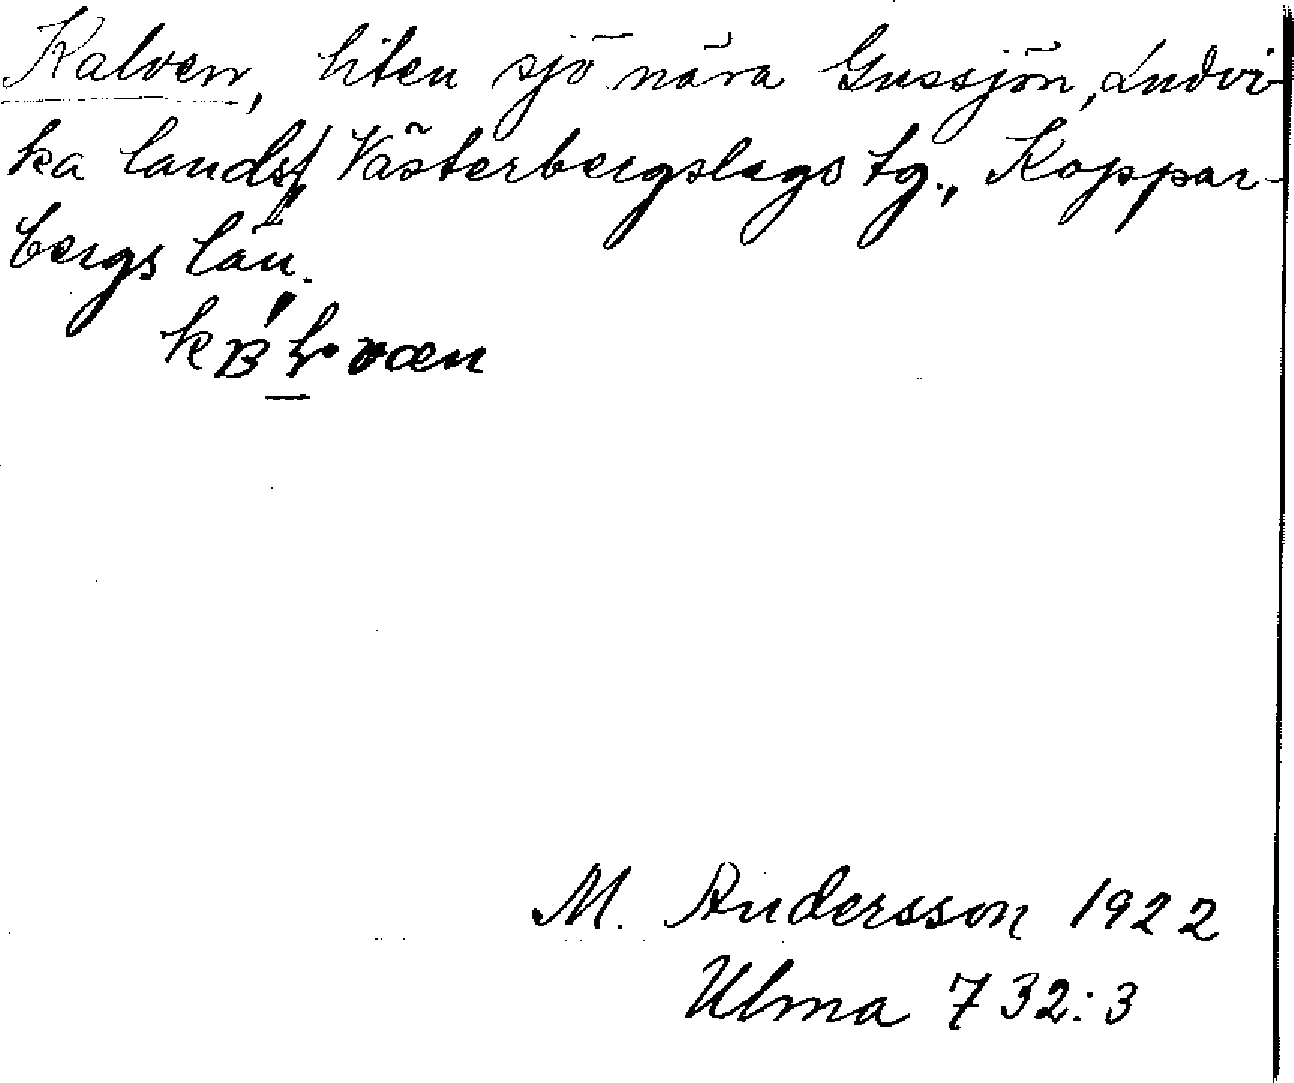 Kalven, liten sjö nära Gussjön, Ludvi-
ka landsf, Västerbergslags tg., Koppar-
bergs län.
M. Andersson 1922
Ulma 732:3